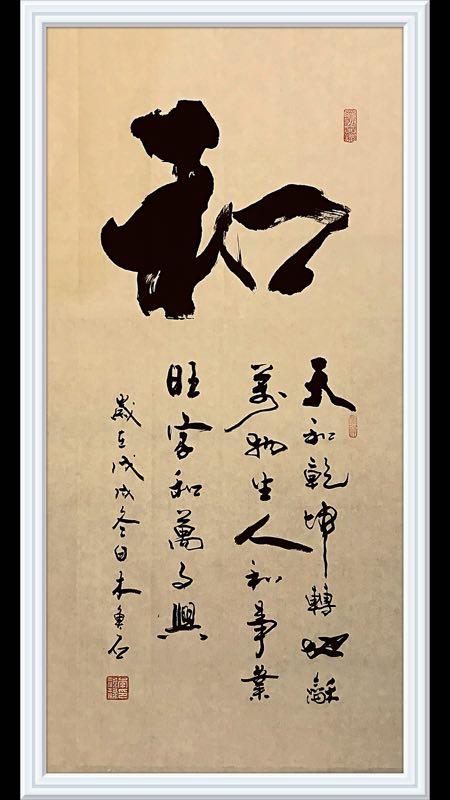 和
天和乾坤轉地龢
萬物生人和事業
旺家和萬事興
歲在戊戌冬日木魚石